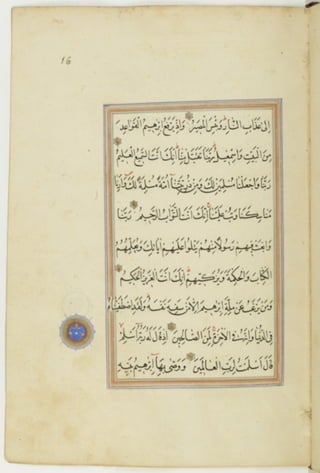 16
إِلَى عَذَابِ النَّارِ وَبِئْسَ الْمَصِيرُ وَإِذْ يَرْفَعُ إِبْرَاهِيمُ الْقَوَاعِدَ
مِنَ الْبَيْتِ وَإِسْمَاعِيلُ رَبَّنَا تَقَبَّلْ مِنَّا إِنَّكَ أَنْتَ السَّمِيعُ الْعَلِيمُ
رَبَّنَا وَاجْعَلْنَا مُسْلِمَيْنِ لَكَ وَمِنْ ذُرِّيَّتِنَا أُمَّةً مُسْلِمَةً لَكَ وَأَرِنَا
مَنَاسِكَنَا وَتُبْ عَلَيْنَا إِنَّكَ أَنْتَ التَّوَّابُ الرَّحِيمُ رَبَّنَا
وَابْعَثْ فِيهِمْ رَسُولًا مِنْهُمْ يَتْلُو عَلَيْهِمْ آيَاتِكَ وَيُعَلِّمُهُمُ
الْكِتَابَ وَالْحِكْمَةَ وَيُزَكِّيهِمْ إِنَّكَ أَنْتَ الْعَزِيزُ الْحَكِيمُ
وَمَنْ يَرْغَبُ عَنْ مِلَّةِ إِبْرَاهِيمَ إِلَّا مَنْ سَفِهَ نَفْسَهُ وَلَقَدِ اصْطَفَيْنَاهُ
فِي الدُّنْيَا وَإِنَّهُ فِي الْآخِرَةِ لَمِنَ الصَّالِحِينَ إِذْ قَالَ لَهُ رَبُّهُ أَسْلِمْ
قَالَ أَسْلَمْتُ لِرَبِّ الْعَالَمِينَ وَوَصَّى بِهَا إِبْرَاهِيمُ بَنِيهِ